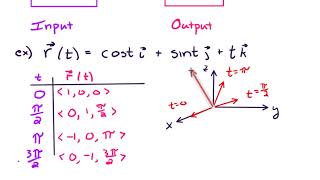 Input Output
ex) r⃗(t) = cost i⃗ + sint j⃗ + t k⃗
t r⃗(t)
0 <1, 0, 0>
π/2 <0, 1, π/2>
π <-1, 0, π>
3π/2 <0, -1, 3π/2>
z t=π
t=π/2
t=0
x y